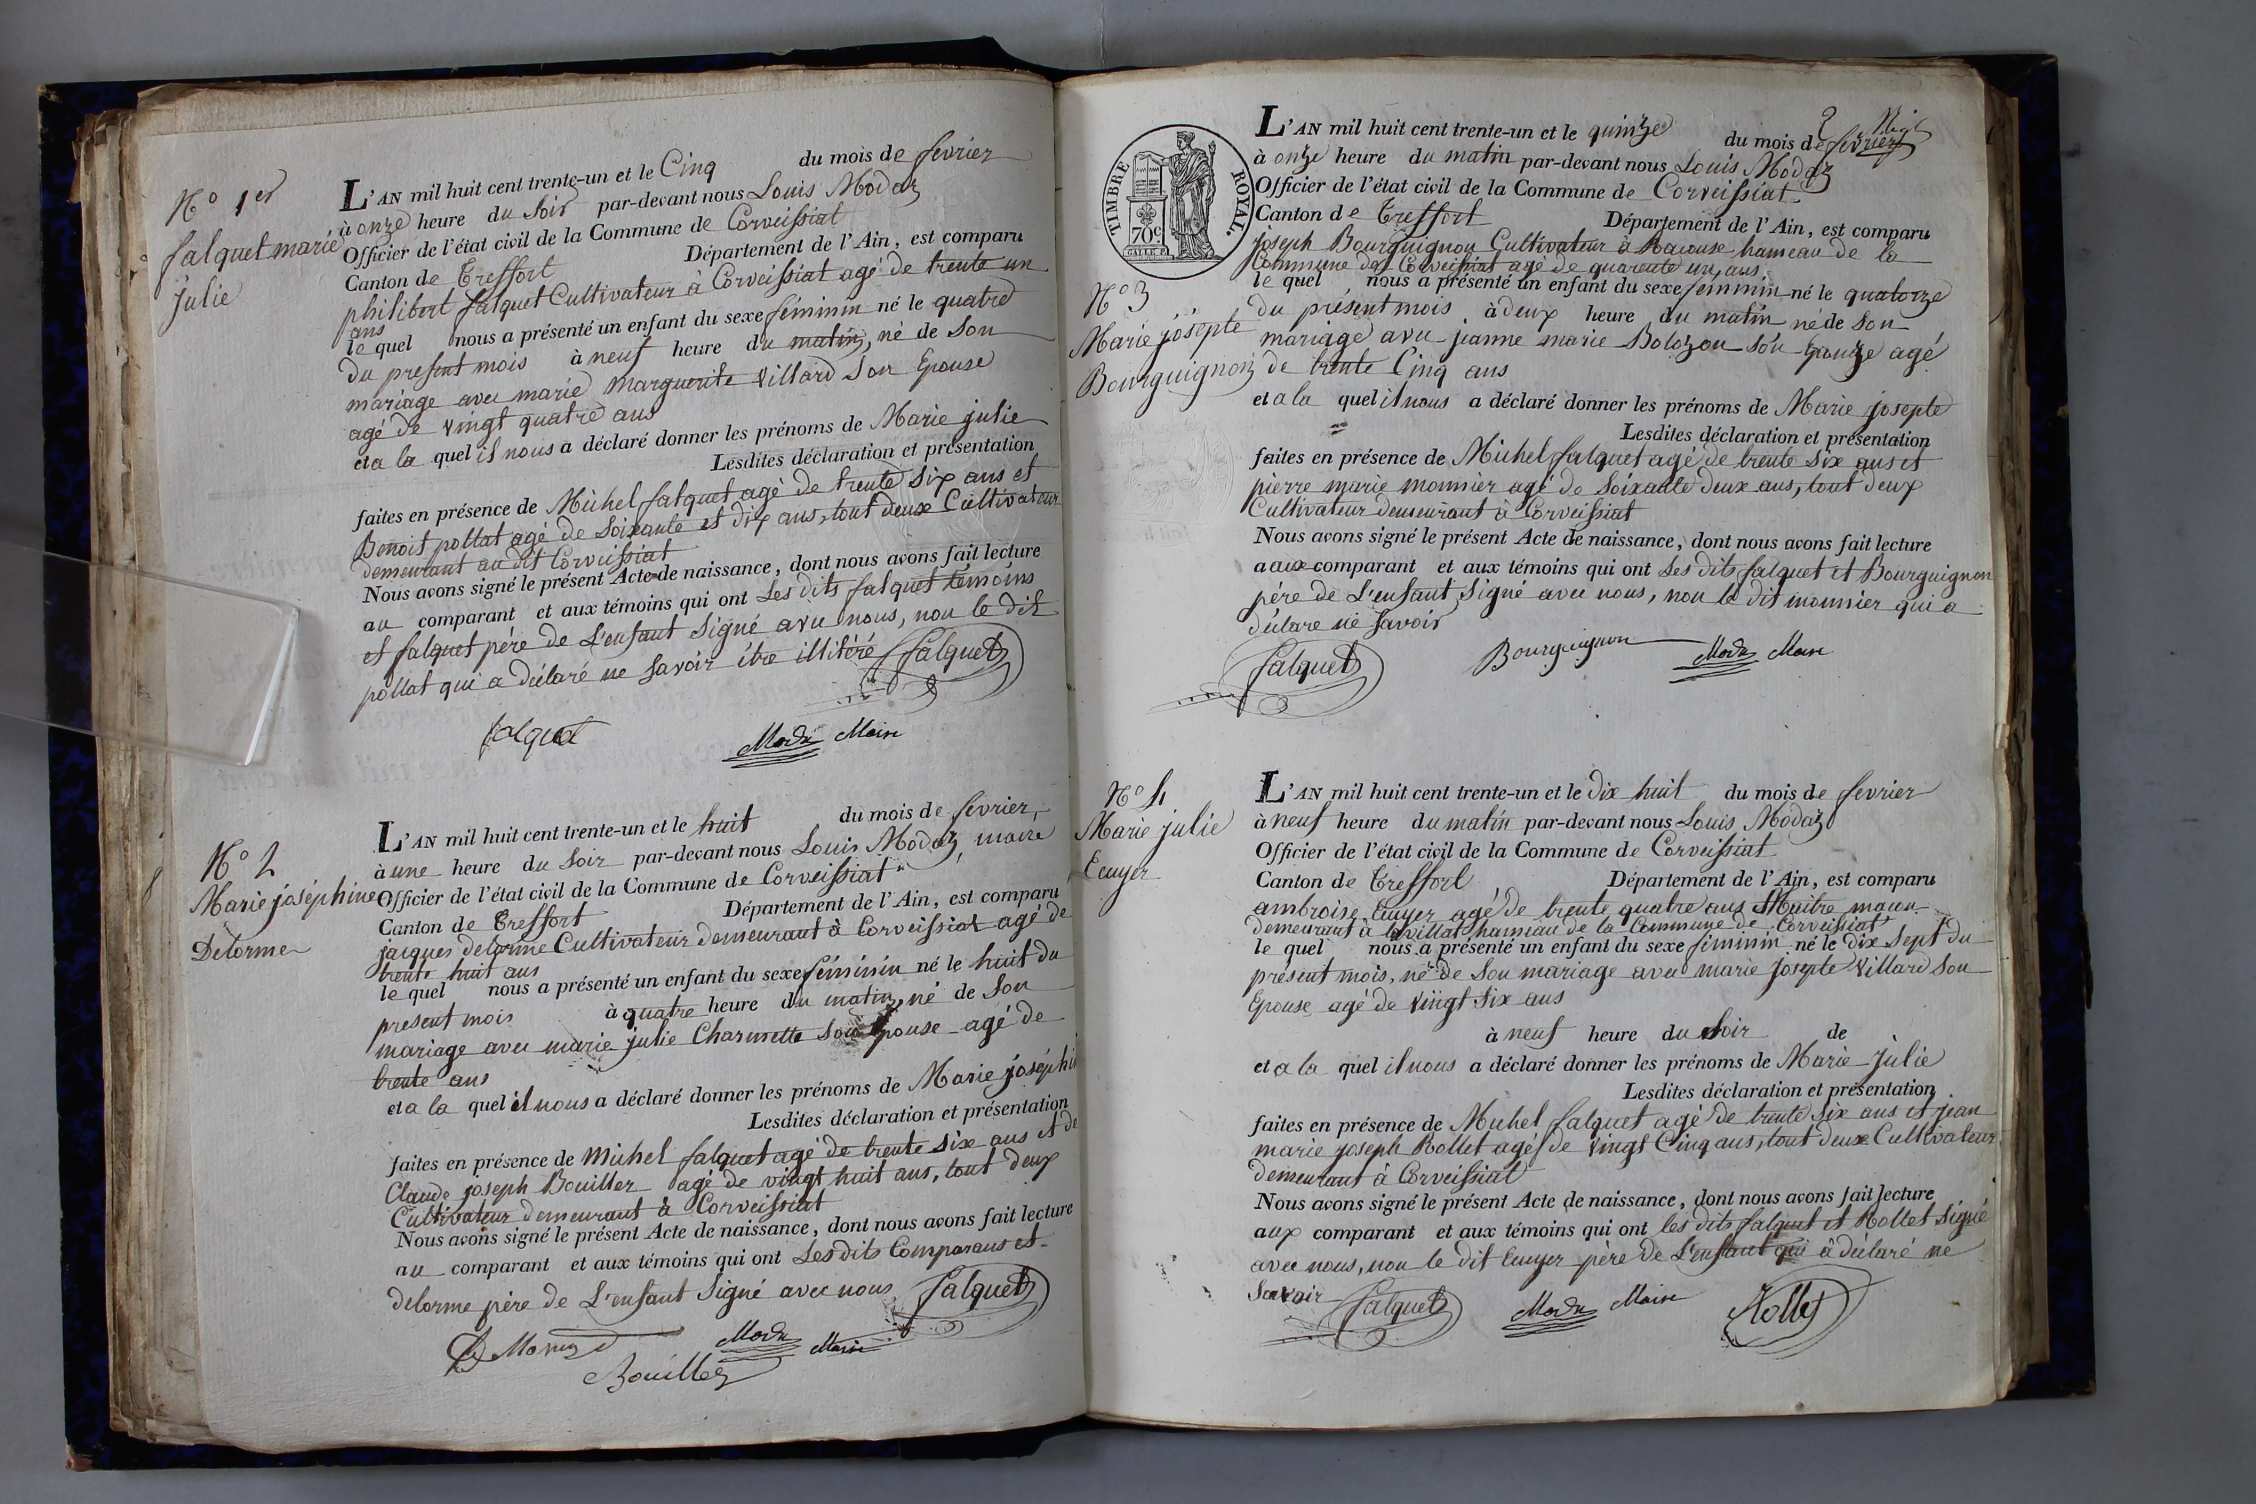 N° 1er
falquet marie
julie
L'AN mil huit cent trente-un et le Cinq du mois de fevrier
à onze heure du soir par-devant nous Louis Modaz
Officier de l'état civil de la Commune de Corveissiat
Canton de Treffort Département de l'Ain, est comparu
philibert falquet Cultivateur à Corveissiat agé de trente un
ans
le quel nous a présenté un enfant du sexe féminin né le quatre
du present mois à neuf heure du matin, né de son
mariage avec marie marguerite villard son Epouse
agé de vingt quatre ans
et a la quel il nous a déclaré donner les prénoms de Marie julie
Lesdites déclaration et présentation
faites en présence de Michel falquet agé de trente six ans et
Benoit pollat agé de soixante et dix ans, tout deux Cultivateur
demeurant au dit Corveissiat
Nous avons signé le présent Acte de naissance, dont nous avons fait lecture
au comparant et aux témoins qui ont Les dits falquet témoins
et falquet père de L'enfant signé avec nous, non le dit
pollat qui a déclaré ne savoir être illitéré
falquet
falquet
Modaz Maire
N° 2
Marie joséphine
Delorme
L'AN mil huit cent trente-un et le huit du mois de fevrier,
à une heure du soir par-devant nous Louis Modaz, maire
Officier de l'état civil de la Commune de Corveissiat
Canton de Treffort Département de l'Ain, est comparu
jacques delorme Cultivateur demeurant à Corveissiat agé de
trente huit ans
le quel nous a présenté un enfant du sexe féminin né le huit du
present mois à quatre heure du matin, né de son
mariage avec marie julie Charnette son Epouse agé de
trente ans
et a la quel il nous a déclaré donner les prénoms de Marie joséphi
Lesdites déclaration et présentation
faites en présence de Michel falquet agé de trente six ans et de
Claude joseph Bouiller agé de vingt huit ans, tout deux
Cultivateur demeurant à Corveissiat
Nous avons signé le présent Acte de naissance, dont nous avons fait lecture
au comparant et aux témoins qui ont Les dits Comparans et
delorme père de L'enfant signé avec nous falquet
Modaz Maire
Bouiller
TIMBRE ROYAL.
70c.
2
L'AN mil huit cent trente-un et le quinze du mois de fevrier
à onze heure du matin par-devant nous Louis Modaz
Officier de l'état civil de la Commune de Corveissiat
Canton de Treffort Département de l'Ain, est comparu
joseph Bourguignon Cultivateur à hameau de la
Commune de Corveissiat agé de quarente un ans,
le quel nous a présenté un enfant du sexe féminin né le quatorze
N° 3
Marie josepte
Bourguignon
du présent mois à deux heure du matin né de son
mariage avec jeanne marie Bolozon son Epouze agé
de trente Cinq ans
et a la quel il nous a déclaré donner les prénoms de Marie josepte
Lesdites déclaration et présentation
faites en présence de Michel falquet agé de trente six ans et
pierre marie monnier agé de soixante deux ans, tout deux
Cultivateur demeurant à Corveissiat
Nous avons signé le présent Acte de naissance, dont nous avons fait lecture
a aux comparant et aux témoins qui ont Les dits falquet et Bourguignon
père de L'enfant signé avec nous, non le dit monnier qui a
déclare ne savoir
falquet Bourguignon Modaz Maire
N° 4
Marie julie
Ecuyer
L'AN mil huit cent trente-un et le dix huit du mois de fevrier
à neuf heure du matin par-devant nous Louis Modaz
Officier de l'état civil de la Commune de Corveissiat
Canton de Treffort Département de l'Ain, est comparu
ambroise Ecuyer agé de trente quatre ans Maitre macon
demeurant à hameau de la Commune de Corveissiat
le quel nous a présenté un enfant du sexe féminin né le dix sept du
présent mois, né de son mariage avec marie josepte villard son
Epouse agé de vingt six ans
à neuf heure du soir de
et a la quel il nous a déclaré donner les prénoms de Marie julie
Lesdites déclaration et présentation
faites en présence de Michel falquet agé de trente six ans et jean
marie joseph Rollet agé de vingt Cinq ans, tout deux Cultivateur
demeurant à Corveissiat
Nous avons signé le présent Acte de naissance, dont nous avons fait lecture
aux comparant et aux témoins qui ont les dits falquet et Rollet signé
avec nous, non le dit Ecuyer père de L'enfant qui a déclaré ne
savoir
falquet Modaz Maire Rollet